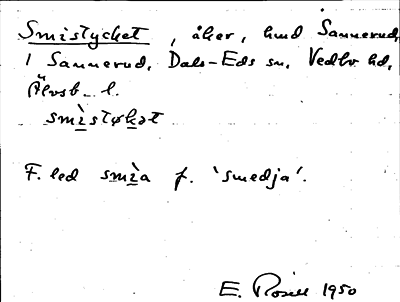 Smistycket, åker, hmd Sannerud,
1 Sannerud, Dals-Eds sn, Vedbo hd,
Älvsb. l.
smìstykət
F. led smìa f. 'smedja'.
E. Rosell 1950